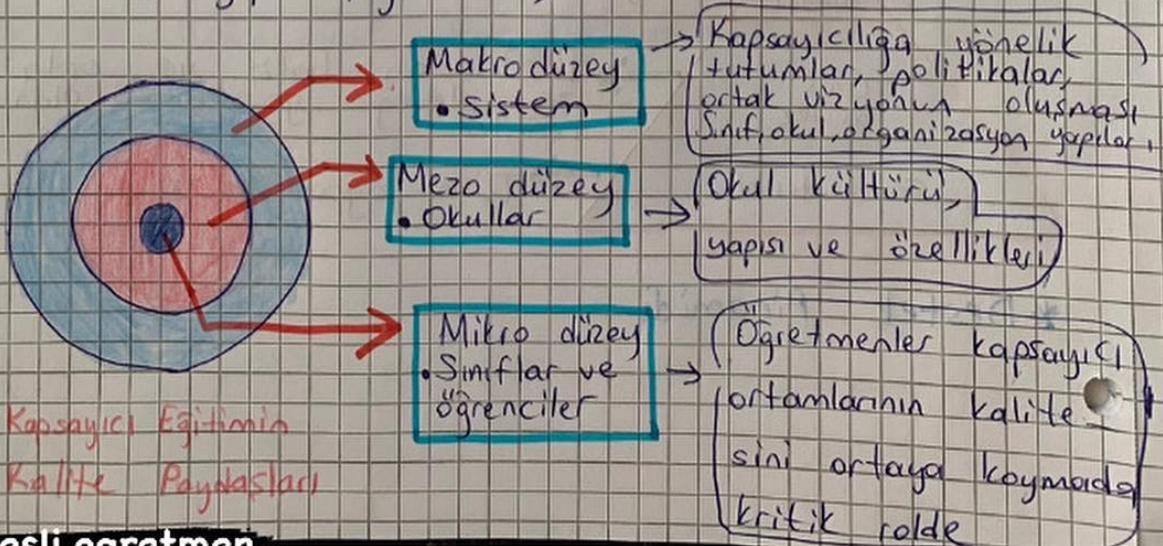 Makro düzey
• Sistem
Kapsayıcılığa yönelik
tutumlar, politikalar,
ortak vizyonun oluşması
Sınıf, okul, organizasyon yapıları
Mezo düzey
• Okullar
Okul kültürü,
yapısı ve özellikleri
Mikro düzey
• Sınıflar ve
öğrenciler
Öğretmenler kapsayıcı
ortamlarının kalite_
sini ortaya koymada
kritik rolde
Kapsayıcı Eğitimin
Kalite Paydaşları